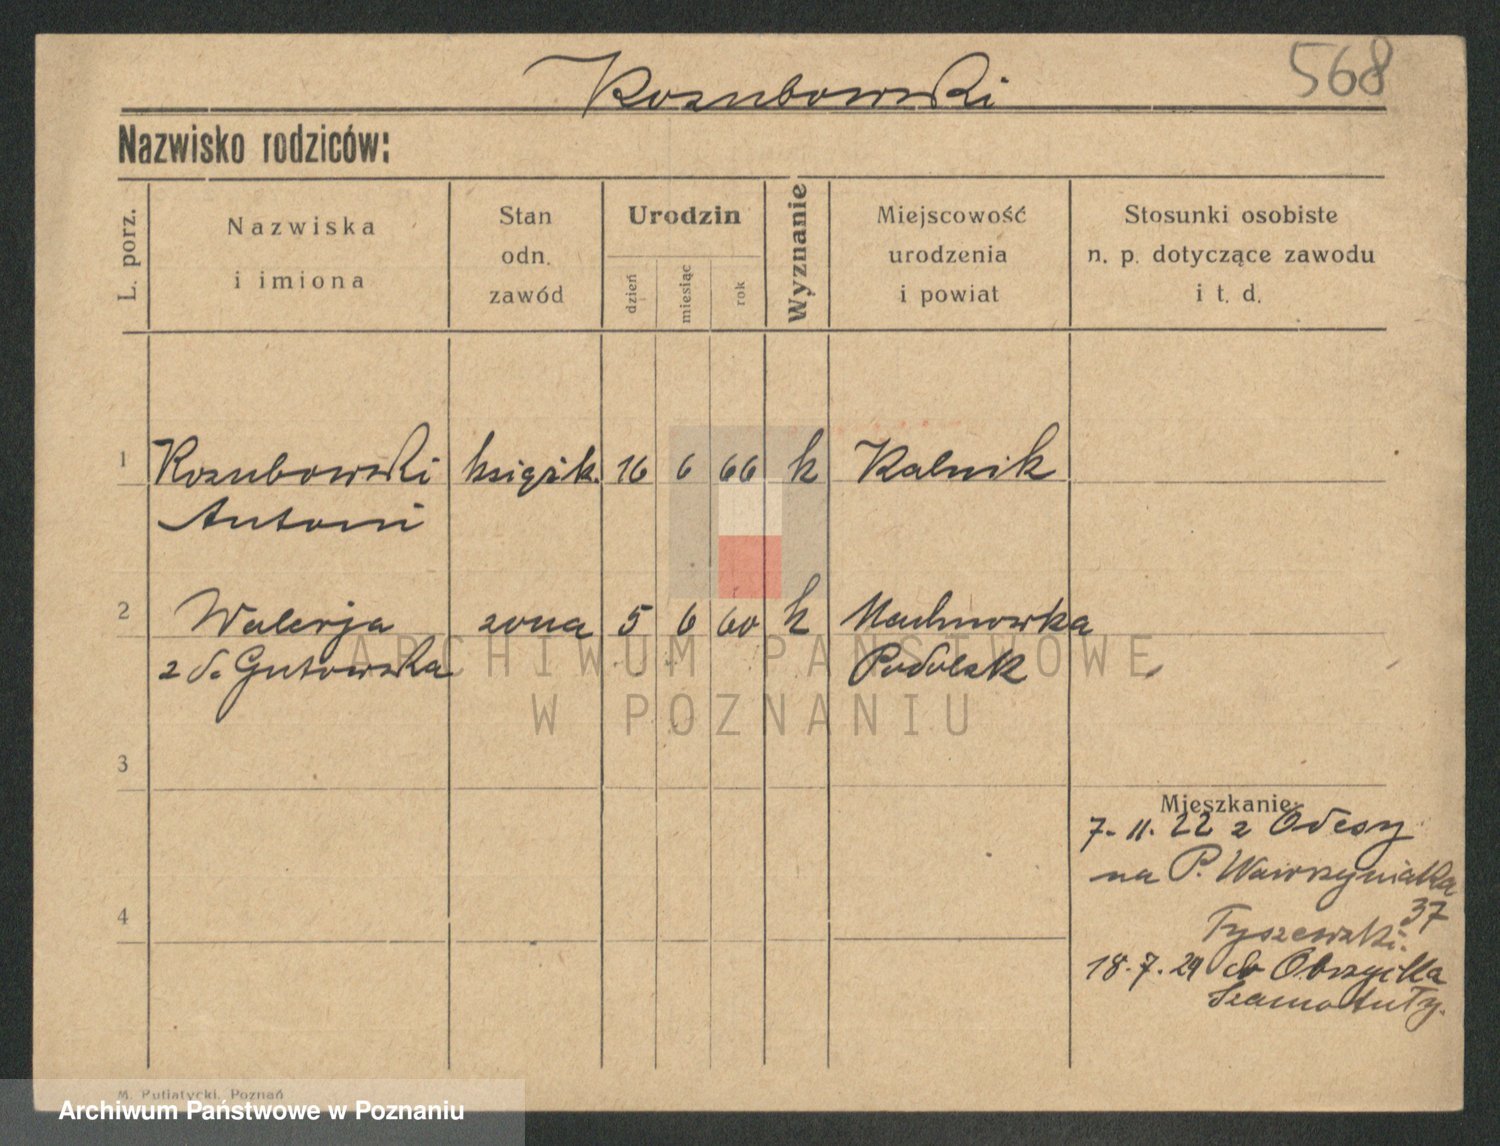 568
Kozubowski
Nazwisko rodziców:
L. porz.
Nazwiska
i imiona
Stan
odn.
zawód
Urodzin
dzień
miesiąc
rok
Wyznanie
Miejscowość
urodzenia
i powiat
Stosunki osobiste
n. p. dotyczące zawodu
i t. d.
1 Kozubowski książk. 16 6 66 k Kalnik
Antoni
2 Walerja żona 5 6 60 k Machnowka
z d. Gutowska Podolsk
ARCHIWUM PAŃSTWOWE
W POZNANIU
3
Mieszkanie:
7. 11. 22 z Odesy
na P. Wawrzyniaka
37
4
Tyszewski.
18. 7. 29 do Obrzycka
Szamotuły.
M. Putiatycki, Poznań
Archiwum Państwowe w Poznaniu